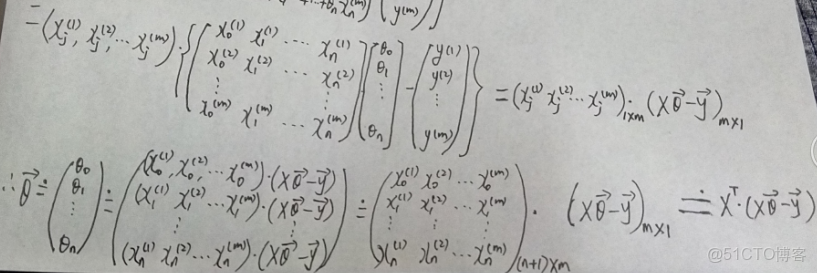 =(xⱼ⁽¹⁾, xⱼ⁽²⁾, ⋯ xⱼ⁽ᵐ⁾)·{(x₀⁽¹⁾ x₁⁽¹⁾ ⋯ xₙ⁽¹⁾; x₀⁽²⁾ x₁⁽²⁾ ⋯ xₙ⁽²⁾; ⋮ ⋮; x₀⁽ᵐ⁾ x₁⁽ᵐ⁾ ⋯ xₙ⁽ᵐ⁾)(θ₀; θ₁; ⋮; θₙ) - (y⁽¹⁾; y⁽²⁾; ⋮; y⁽ᵐ⁾)} = (xⱼ⁽¹⁾ xⱼ⁽²⁾ ⋯ xⱼ⁽ᵐ⁾)_{1×m}·(Xθ⃗-y⃗)_{m×1}
∴ θ⃗ ≐ (θ₀; θ₁; ⋮; θₙ) ≐ ((x₀⁽¹⁾, x₀⁽²⁾, ⋯ x₀⁽ᵐ⁾)·(Xθ⃗-y⃗); (x₁⁽¹⁾ x₁⁽²⁾ ⋯ x₁⁽ᵐ⁾)·(Xθ⃗-y⃗); ⋮ ⋮; (xₙ⁽¹⁾ xₙ⁽²⁾ ⋯ xₙ⁽ᵐ⁾)·(Xθ⃗-y⃗)) ≐ (x₀⁽¹⁾ x₀⁽²⁾ ⋯ x₀⁽ᵐ⁾; x₁⁽¹⁾ x₁⁽²⁾ ⋯ x₁⁽ᵐ⁾; ⋮ ⋮ ⋮; xₙ⁽¹⁾ xₙ⁽²⁾ ⋯ xₙ⁽ᵐ⁾)_{(n+1)×m} · (Xθ⃗-y⃗)_{m×1} ≐ Xᵀ·(Xθ⃗-y⃗)
@51CTO博客